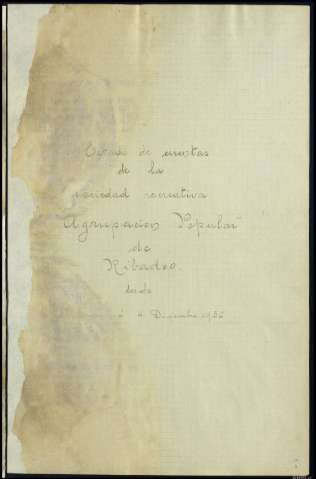 Estado de cuentas
de la
sociedad recreativa
Agrupacion Popular
de
Ribadeo.
desde
á 4 Diciembre 1936